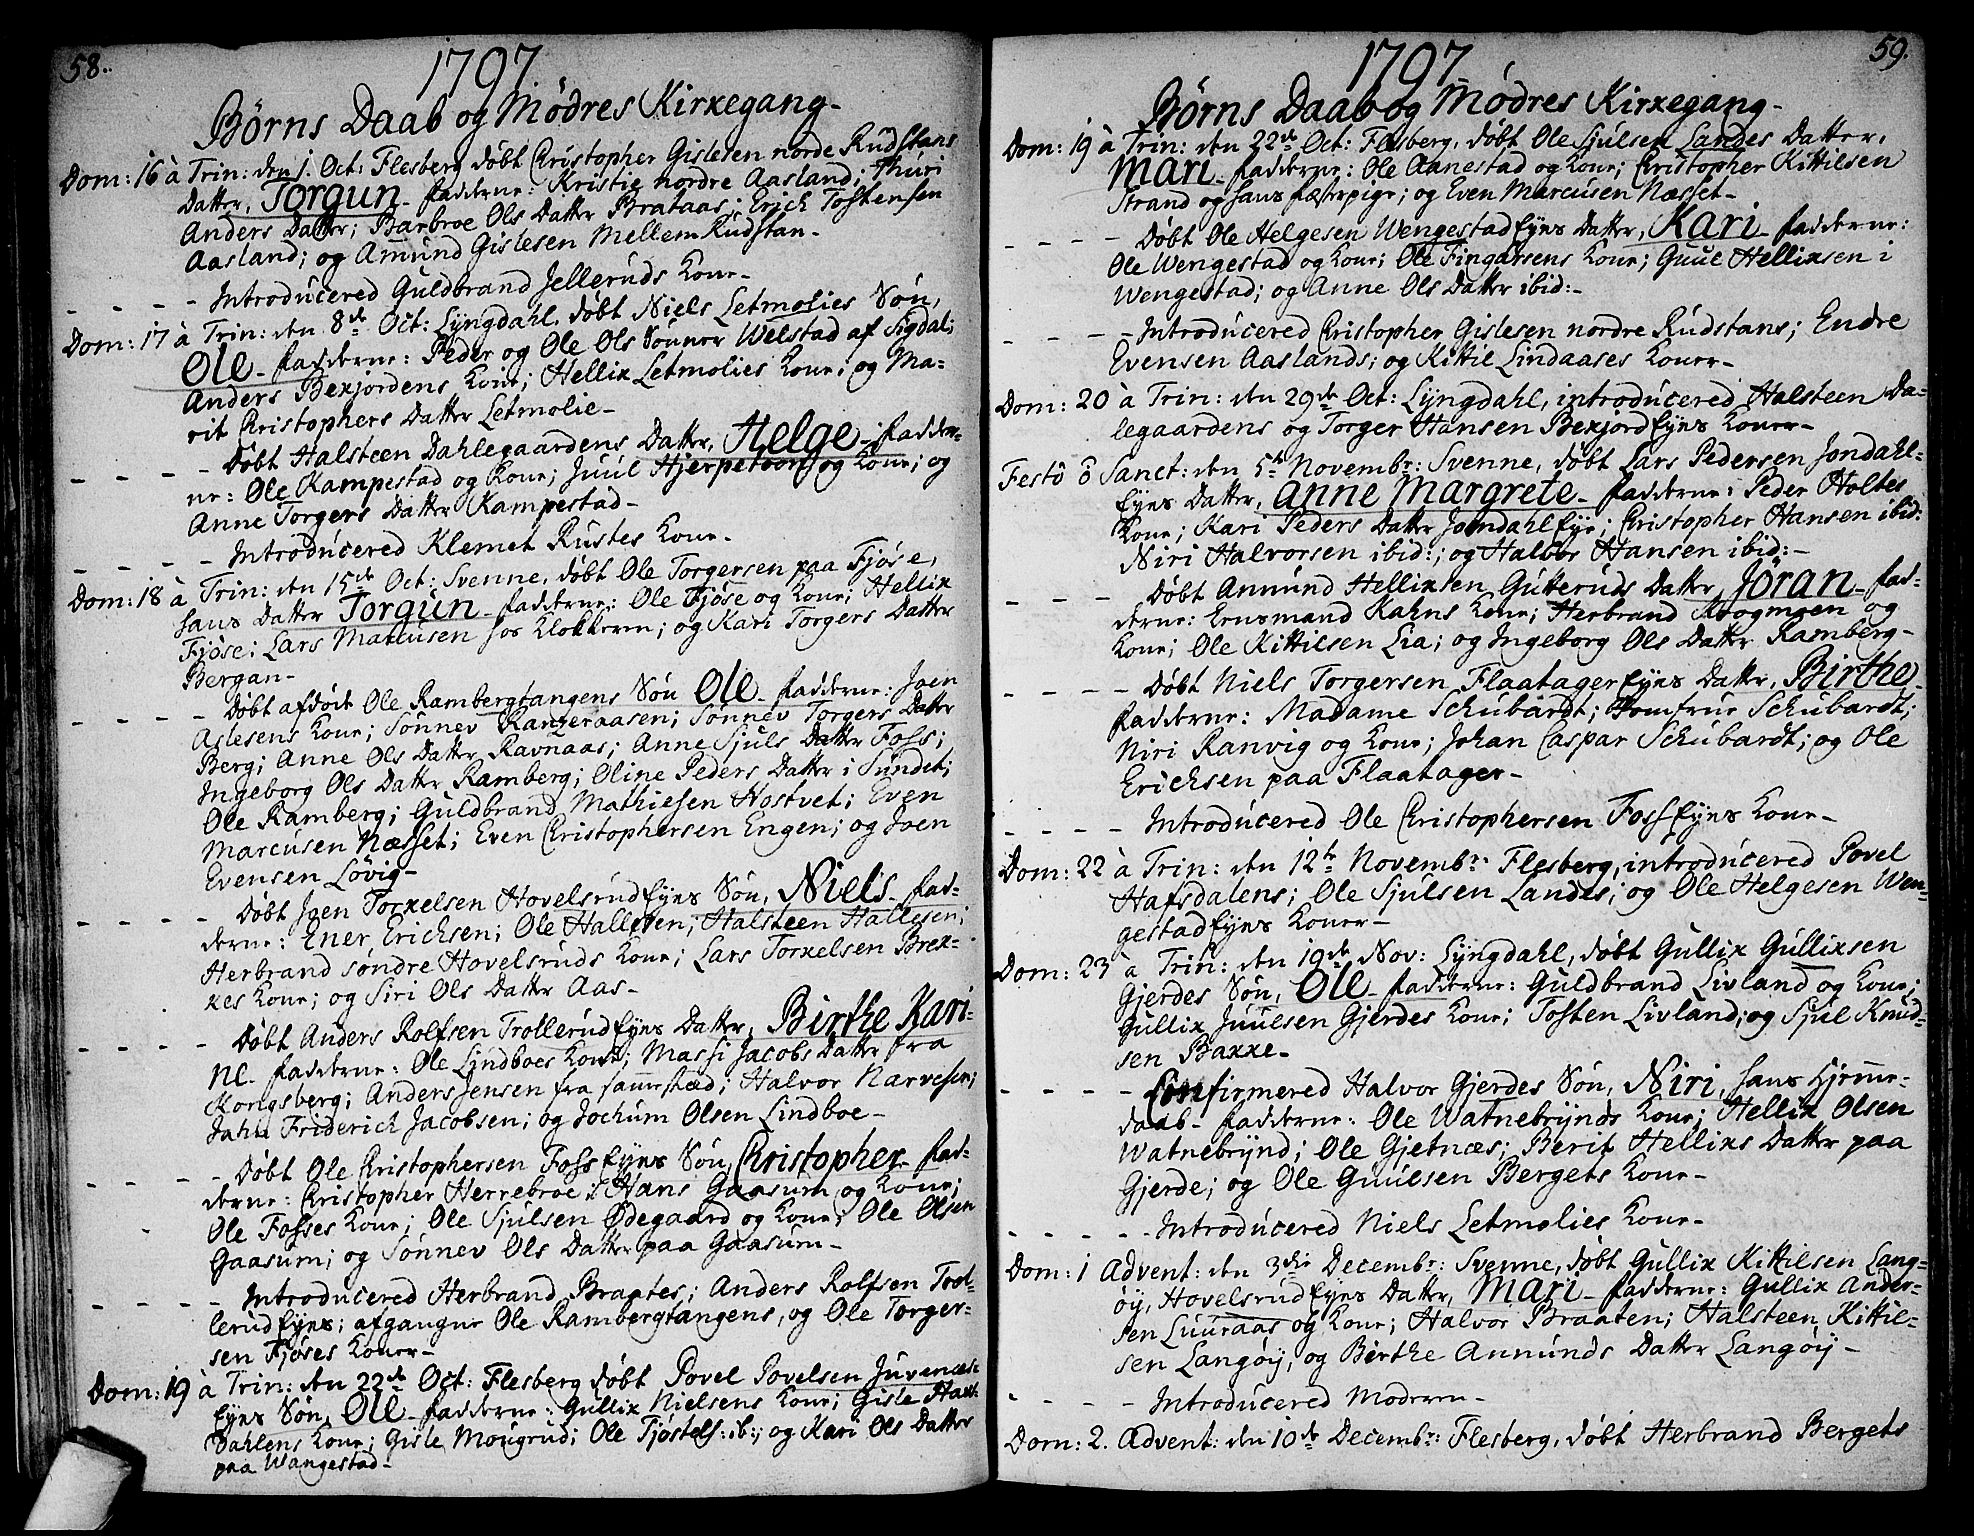 58.
1797
Børns Daab og Mødres Kirkegang-
Dom: 16 à Trin: den 1. Oct: Flesberg døbt Christopher Gislesen nordre Rudstans
Datter, Torgun- fadderne: Kristie nordre Aasland; Thuri
Anders Datter; Barbroe Ols Datter Brataas; Erich Tostensen
Aasland; og Amund Gislesen Mellem Rudstan-
- - - - Introducered Guldbrand Jelleruds Kone-
Dom: 17 à Trin: den 8de Oct: Lyngdahl, døbt Niels Letmolies Søn,
Ole- fadderne: Peder og Ole Ols Sønner Welstad af Sigdal;
Anders Bexjordens Kone; Hellix Letmolies Kone; og Ma=
rit Christophers Datter Letmolie-
- - - - Døbt Halsteen Dahlegaardens Datter, Helge- fadder=
ne: Ole Kampestad og Kone; Juul Hjerpetoon og Kone; og
Anne Torgers Datter Kampestad-
- - - - Introducered Klemet Rustes Kone-
Dom: 18 à Trin: den 15de Oct: Svenne, døbt Ole Torgersen paa Fjøse,
hans Datter Torgun- fadderne: Ole Fjøse og Kone; Hellix
Fjøse; Lars Marcusen hos Klokkeren; og Kari Torgers Datter
Bergan-
- - - - Døbt afdøde Ole Rambergtangens Søn Ole- fadderne: Joen
Aslesens Kone; Sønnev Ranzeraasen; Sønnev Torgers Datter
Berg; Anne Ols Datter Ravnaas; Anne Sjuls Datter Foss;
Ingeborg Ols Datter Ramberg; Oline Peders Datter i Sundet;
Ole Ramberg; Guldbrand Mathiesen Hostvet; Even
Marcusen Næsset; Even Christophersen Engen; og Joen
Evensen Løvig-
- - - - Døbt Joen Torxelsen Hovelsrud Eyes Søn, Niels- fad=
derne: Ener Erichsen; Ole Hallesen; Halsteen Hallesen;
Herbrand søndre Hovelsruds Kone; Lars Torxelsen Brex=
xes Kone; og Siri Ols Datter Aas-
- - - - Døbt Anders Rolfsen Trollerud Eyes Datter, Birthe Kari=
ne- fadderne: Ole Lindboes Kone; Massi Jacobs Datter fra
Kongsberg; Anders Jensen fra sammestæd; Halvor Narvesen;
Jahn Friderich Jacobsen; og Jochum Olsen Lindboe-
- - - - Døbt Ole Christophersen Foss Eyes Søn, Christopher- fad=
derne: Christopher Herrebroe; Hans Gaasum og Kone;
Ole Fosses Kone; Ole Sjulsen Ødegaard og Kone; Ole Olsen
Gaasum; og Sønnev Ols Datter paa Gaasum-
- - - - Introducered Herbrand Braates; Anders Rolfsen Trol=
lerud Eyes; afgangne Ole Rambergtangens, og Ole Torger=
sen Fjøses Koner-
Dom: 19 à Trin: den 22de Oct: Flesberg døbt Povel Povelsen Juvenæs=
Eyes Søn, Ole- fadderne: Gullix Nielsens Kone; Gisle
Dahlens Kone; Gisle Mougrud; Ole Tjøstels: ib:; og Kari Ols Datter
paa Wangestad-
59.
1797
Børns Daab og Mødres Kirkegang-
Dom: 19 à Trin: den 22de Oct: Flesberg, døbt Ole Sjulsen Landes Datter,
Mari- fadderne: Ole Aanestad og Kone; Christopher Kittilsen
Strand og hans fæstepige; og Even Marcusen Næsset-
- - - - Døbt Ole Helgesen Wengestad Eyes Datter, Kari- fadderne:
Ole Wengestad og Kone; Ole Fingarsens Kone; Guul Hellixsen i
Wengestad; og Anne Ols Datter ibid:-
- - - - Introducered Christopher Gislesen nordre Rudstans; Endre
Evensen Aaslands; og Kittil Lindaases Koner-
Dom: 20 à Trin: den 29de Oct: Lyngdahl, introducered Halsteen Da=
legaardens og Torger Hansen Bexjord Eyes Koner-
Festo o Sanct: den 5te Novembr: Svenne, døbt Lars Pedersen Jondahl=
Eyes Datter, Anne Margrete- fadderne: Peder Holtes
Kone; Kari Peders Datter Jondahl Eye; Christopher Hansen ibid:
Niri Halvorsen ibid:; og Halvor Hansen ibid:-
- - - - Døbt Anmund Hellixsen Gutteruds Datter, Jöran- fad=
derne: Ernsmand Kahns Kone; Herbrand Krogmoen og
Kone; Ole Kittilsen Lia; og Ingeborg Ols Datter Ramberg-
- - - - Døbt Niels Torgersen Flaatager Eyes Datter, Birthe-
fadderne: Madame Schubardt; Jomfrue Schubardt;
Niri Ranvig og Kone; Johan Caspar Schubardt; og Ole
Erichsen paa Flaatager-
- - - - Introducered Ole Christophersen Foss Eyes Kone-
Dom: 22 à Trin: den 12te Novembr: Flesberg, introducered Povel
Hafsdalens; Ole Sjulsen Landes; og Ole Helgesen Wen=
gestad Eyes Koner-
Dom: 23 à Trin: den 19de Nov: Lyngdahl, døbt Gullix Gullixsen
Gjerdes Søn, Ole- fadderne: Guldbrand Livland og Kone;
Gullix Juulsen Gjerdes Kone; Tosten Livland; og Sjul Knud=
sen Baxxe-
- - - - Confirmered Halvor Gjerdes Søn, Niri, hans Hjemme=
daab- fadderne: Ole Watnebrynds Kone; Hellix Olsen
Watnebrynd; Ole Gjetnæs; Berit Hellixs Datter paa
Gjerde; og Ole Guulsen Bergets Kone-
- - - - Introducered Niels Letmolies Kone-
Dom: 1 Advent: den 3die Decembr: Svenne, døbt Gullix Kittilsen Lang=
øy, Hovelsrud Eyes Datter, Mari- fadderne: Gullix Ander=
sen Luuraas og Kone; Halvor Braaten; Halsteen Kittil=
sen Langøy, og Birthe Anmunds Datter Langøy-
- - - - Introducered Moderen-
Dom: 2. Advent: den 10de Decembr: Flesberg, døbt Herbrand Bergets